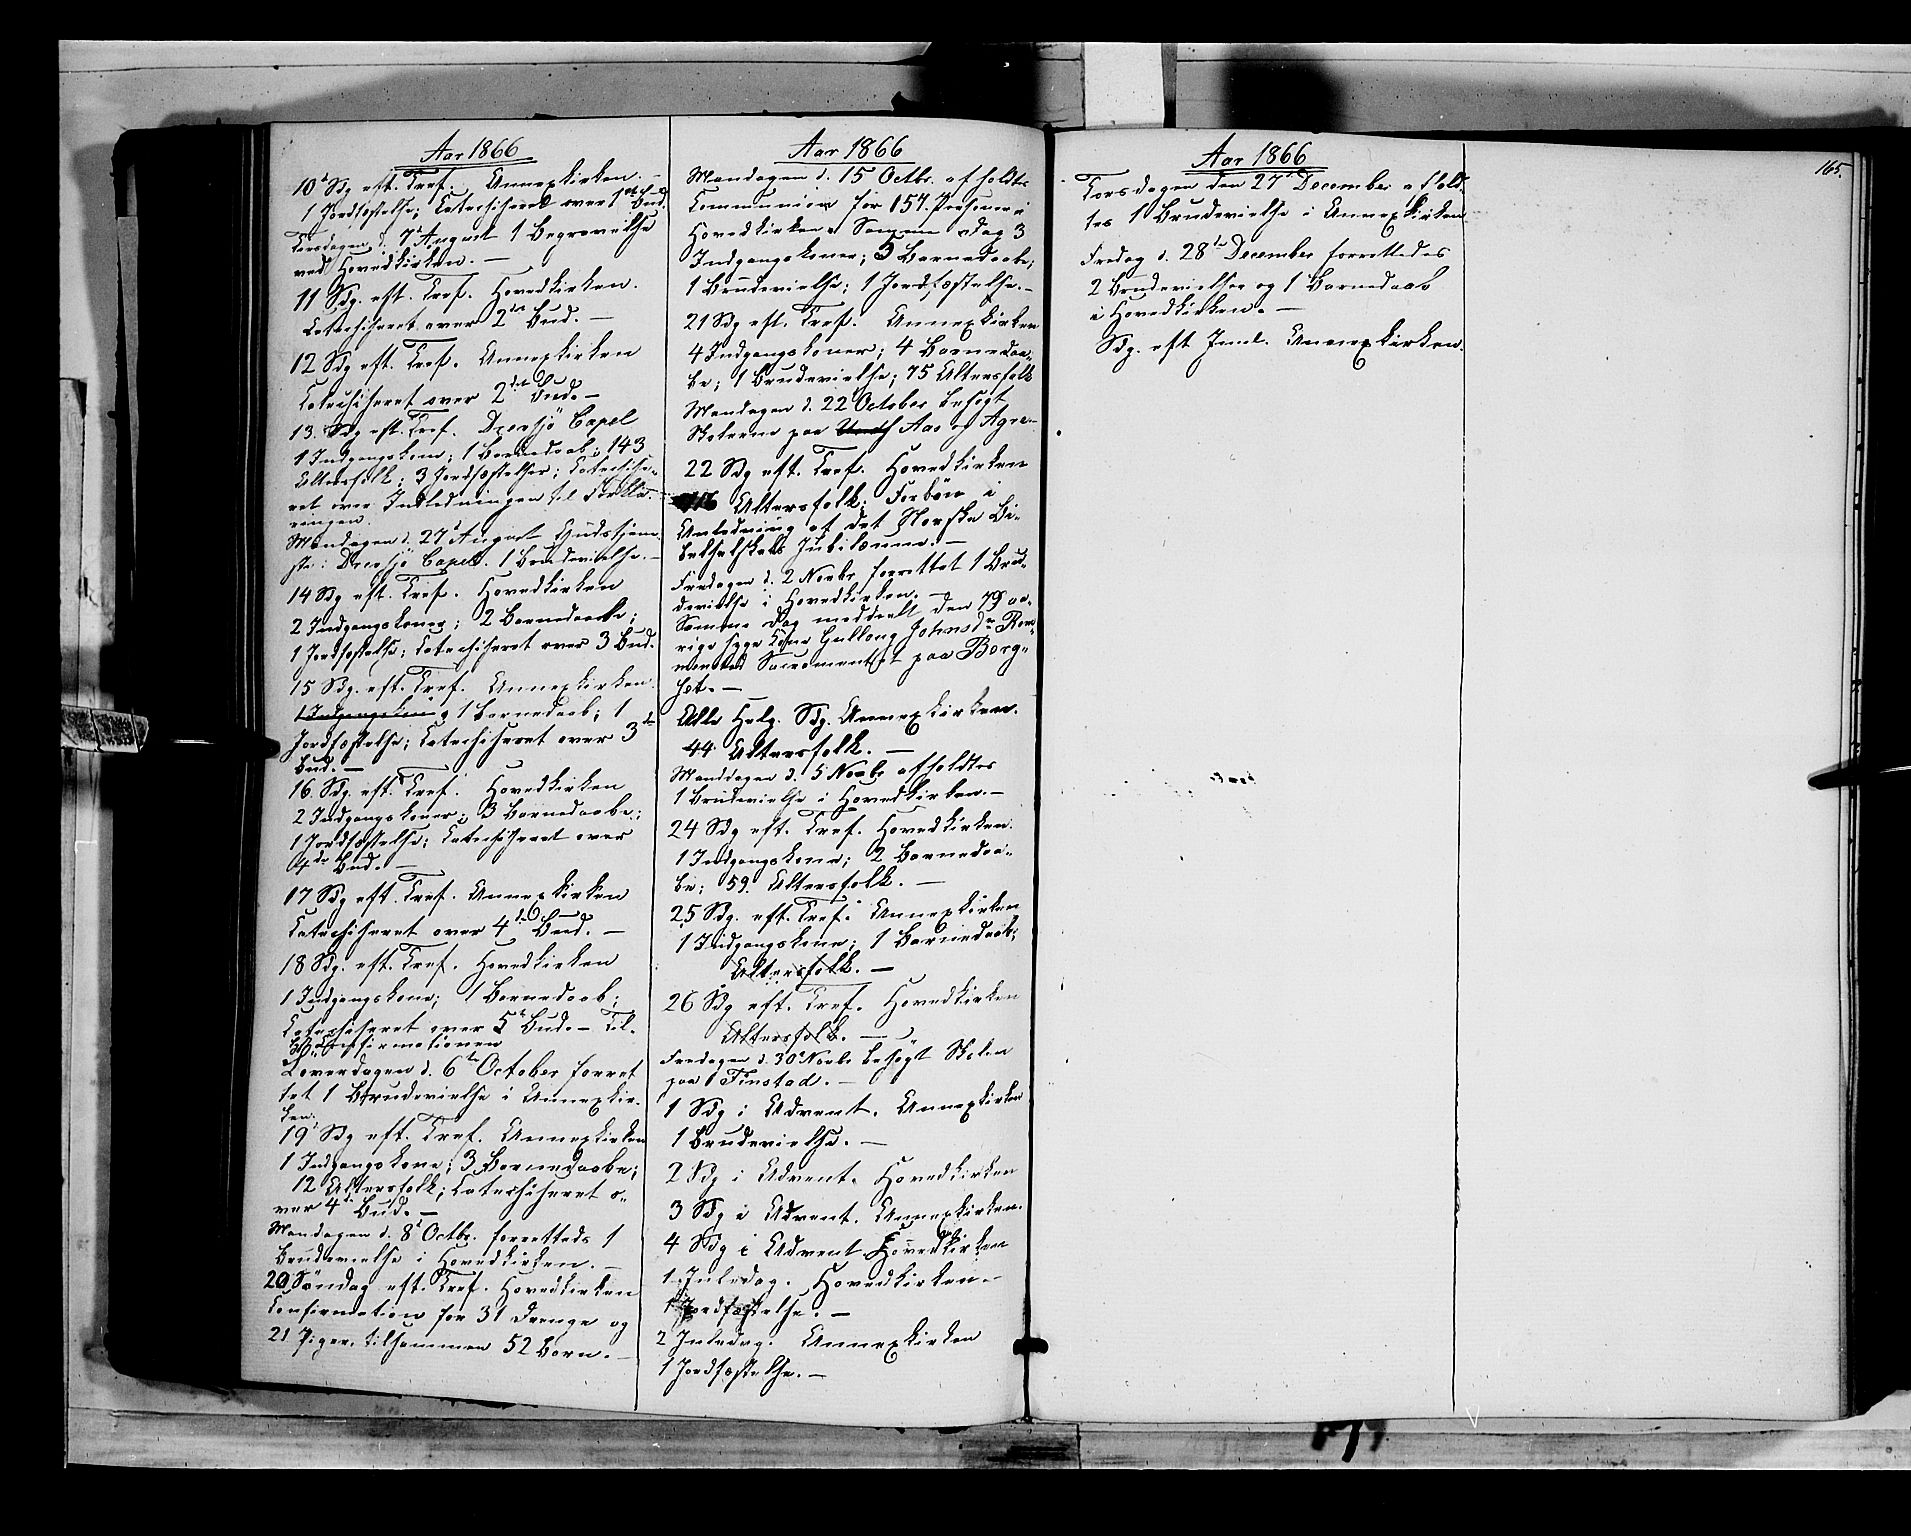 Aar 1866
10de Sdg. eft. Tref. Annexkirken. –
1 Jordfæstelse; Catechiseret over 1ste Bud.
Tirsdagen d. 7de August 1 Begravelse
ved Hovedkirken. –
11 Sdg. eft. Tref. Hovedkirken.
Catechiseret over 2det Bud. –
12 Sdg eft. Tref. Annexkirken
Catechiseret over 2det Bud. –
13. Sdg eft. Tref. Drevsjö Capel
1 Indgangskone; 1 Barnedaab; 143
Altersfolk; 3 Jordfæstelser; Catechise-
ret over Indledningen til Forkla-
ringen.
Mandagen d. 27de August Gudstjene-
ste i Drevsjö Capel. 1 Brudevielse. –
14 Sdg eft. Tref. Hovedkirken
2 Indgangskoner; 2 Barnedaabe;
1 Jordfæstelse; Catechiseret over 3 Bud.
15 Sdg. eft. Tref. Annexkirken.
1 Indgangskone 1 Barnedaab; 1
Jordfæstelse; Catechiseret over 3de
Bud. –
16. Sdg. eft. Tref. Hovedkirken
2 Indgangskoner; 3 Barnedaabe;
1 Jordfæstelse; Catechiseret over
4de Bud. –
17 Sdg eft. Tref. Annexkirken
Catechiseret over 4de Bud. –
18 Sdg. eft. Tref. Hovedkirken
1 Indgangskone; 1 Barnedaab;
Catechiseret over 5te Bud. – Til-
Confirmationen
Löverdagen d. 6te October forret
tet 1 Brudevielse i Annexkir-
ken.
19de Sdg eft. Tref. Annexkirken
1 Indgangskone; 3 Barnedaabe;
12 Altersfolk; Catechiseret o-
ver 4de Bud. –
Mandagen d. 8de Octbr. forretteds 1
Brudevielse i Hovedkirken. –
20 Söndag eft. Tref. Hovedkirken
Confirmation for 31 Drenge og
21 Piger, tilsammen 52 Börn. –
Aar 1866
Mandagen d. 15 Octbr. afholdtes
Communion for 157. Personer i
Hovedkirken. Samme Dag 3
Indgangskoner; 5 Barnedaabe;
1 Brudevielse; 1 Jordfæstelse. –
21 Sdg eft. Tref. Annexkirken
4 Indgangskoner; 4 Barnedaa-
be; 1 Brudevielse; 75 Altersfolk
Mandagen d. 22 October besögt
Skolerne paa Aas og Agre-
22 Sdg eft. Tref. Hovedkirken
Altersfolk; Forbön i
Anledning af det Norske Bi-
belselskabs Jubilæum. –
Fredagen d. 2 Novbr forrettet 1 Bru-
devielse i Hovedkirken. –
Samme Dag meddeelt den 79 aa-
rige syge Kone Gullaug Johnsdr
Sacramentet paa Borg-
set. –
Alle Helg. Sdg. Annexkirken.
44 Altersfolk. –
Mandagen d. 5 Novbr afholdtes
1 Brudevielse i Hovedkirken. –
24 Sdg eft. Tref. Hovedkirken.
1 Indgangskone; 2 Barnedaa-
be; 59. Altersfolk. –
25 Sdg. eft. Tref. Annexkirken
1 Indgangskone; 1 Barnedaab;
Altersfolk. –
26 Sdg eft. Tref. Hovedkirken
Altersfolk. –
Fredagen d. 30te Novbr besögt Skolen
paa Finstad. –
1 Sdg i Advent. Annexkirken
1 Brudevielse. –
2 Sdg i Advent. Hovedkirken
3 Sdg i Advent. Annexkirken.
4 Sdg i Advent Hovedkirken
1. Juledag. Hovedkirken. –
1 Jordfæstelse. –
2 Juledag. Annexkirken
1 Jordfæstelse. –
Aar 1866
165.
Torsdagen den 27de December afhold-
tes 1 Brudevielse i Annexkirken
Fredag d. 28de December forrettedes
2 Brudevielser og 1 Barnedaab
i Hovedkirken. –
Sdg. eft Juul. Annexkirken.